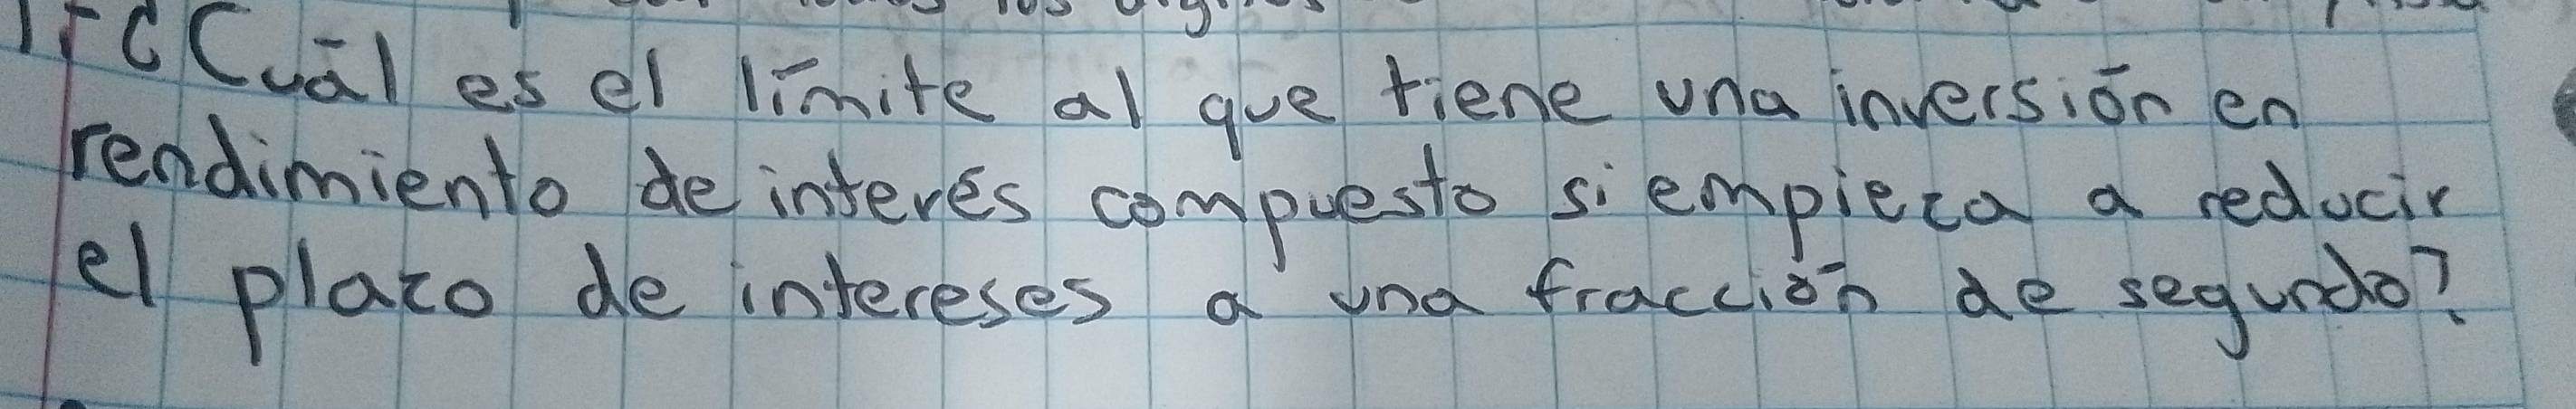 ¿Cuál es el límite al que tiene una inversión en
rendimiento de interés compuesto si empieza a reducir
el plazo de intereses a una fracción de segundo?